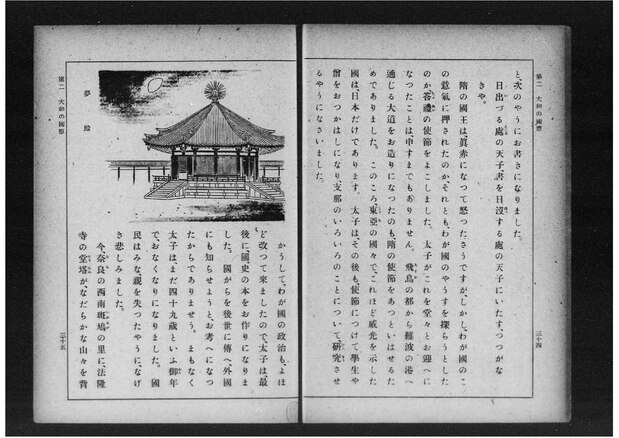 第二 大和の國原
三十四
と、次のやうにお書きになりました。
日出づる處の天子、書を日沒する處の天子にいたす。つつがな
きや。
隋の國王は、眞赤になつて怒つたさうですが、しかし、わが國のこ
の意氣に押されたのか、それとも、わが國のやうすを探らうとした
のか、答禮の使節をよこしました。太子がこれを堂々とお迎へに
なつたことは、申すまでもありません。飛鳥の都から難波の港へ
通じる大道をお造りになつたのも、隋の使節をあつといはせるた
めでありました。このころ東亞の國々で、これほど威光を示した
國は、日本だけであります。太子は、その後も、使節につけて學生や
僧をおつかはしになり、支那のいろいろのことについて、硏究させ
るやうになさいました。
第二 大和の國原
三十五
夢殿
かうして、わが國の政治も、よほ
ど改つて來ましたので、太子は、最
後に國史の本をお作りになりま
した。國がらを後世に傳へ、外國
にも知らせようと、お考へになつ
たからでありませう。まもなく
太子は、まだ四十九歲といふ御年
で、おなくなりになりました。國
民はみな、親を失つたやうに、なげ
き悲しみました。
今、奈良の西南斑鳩の里に、法隆
寺の堂塔が、なだらかな山々を背